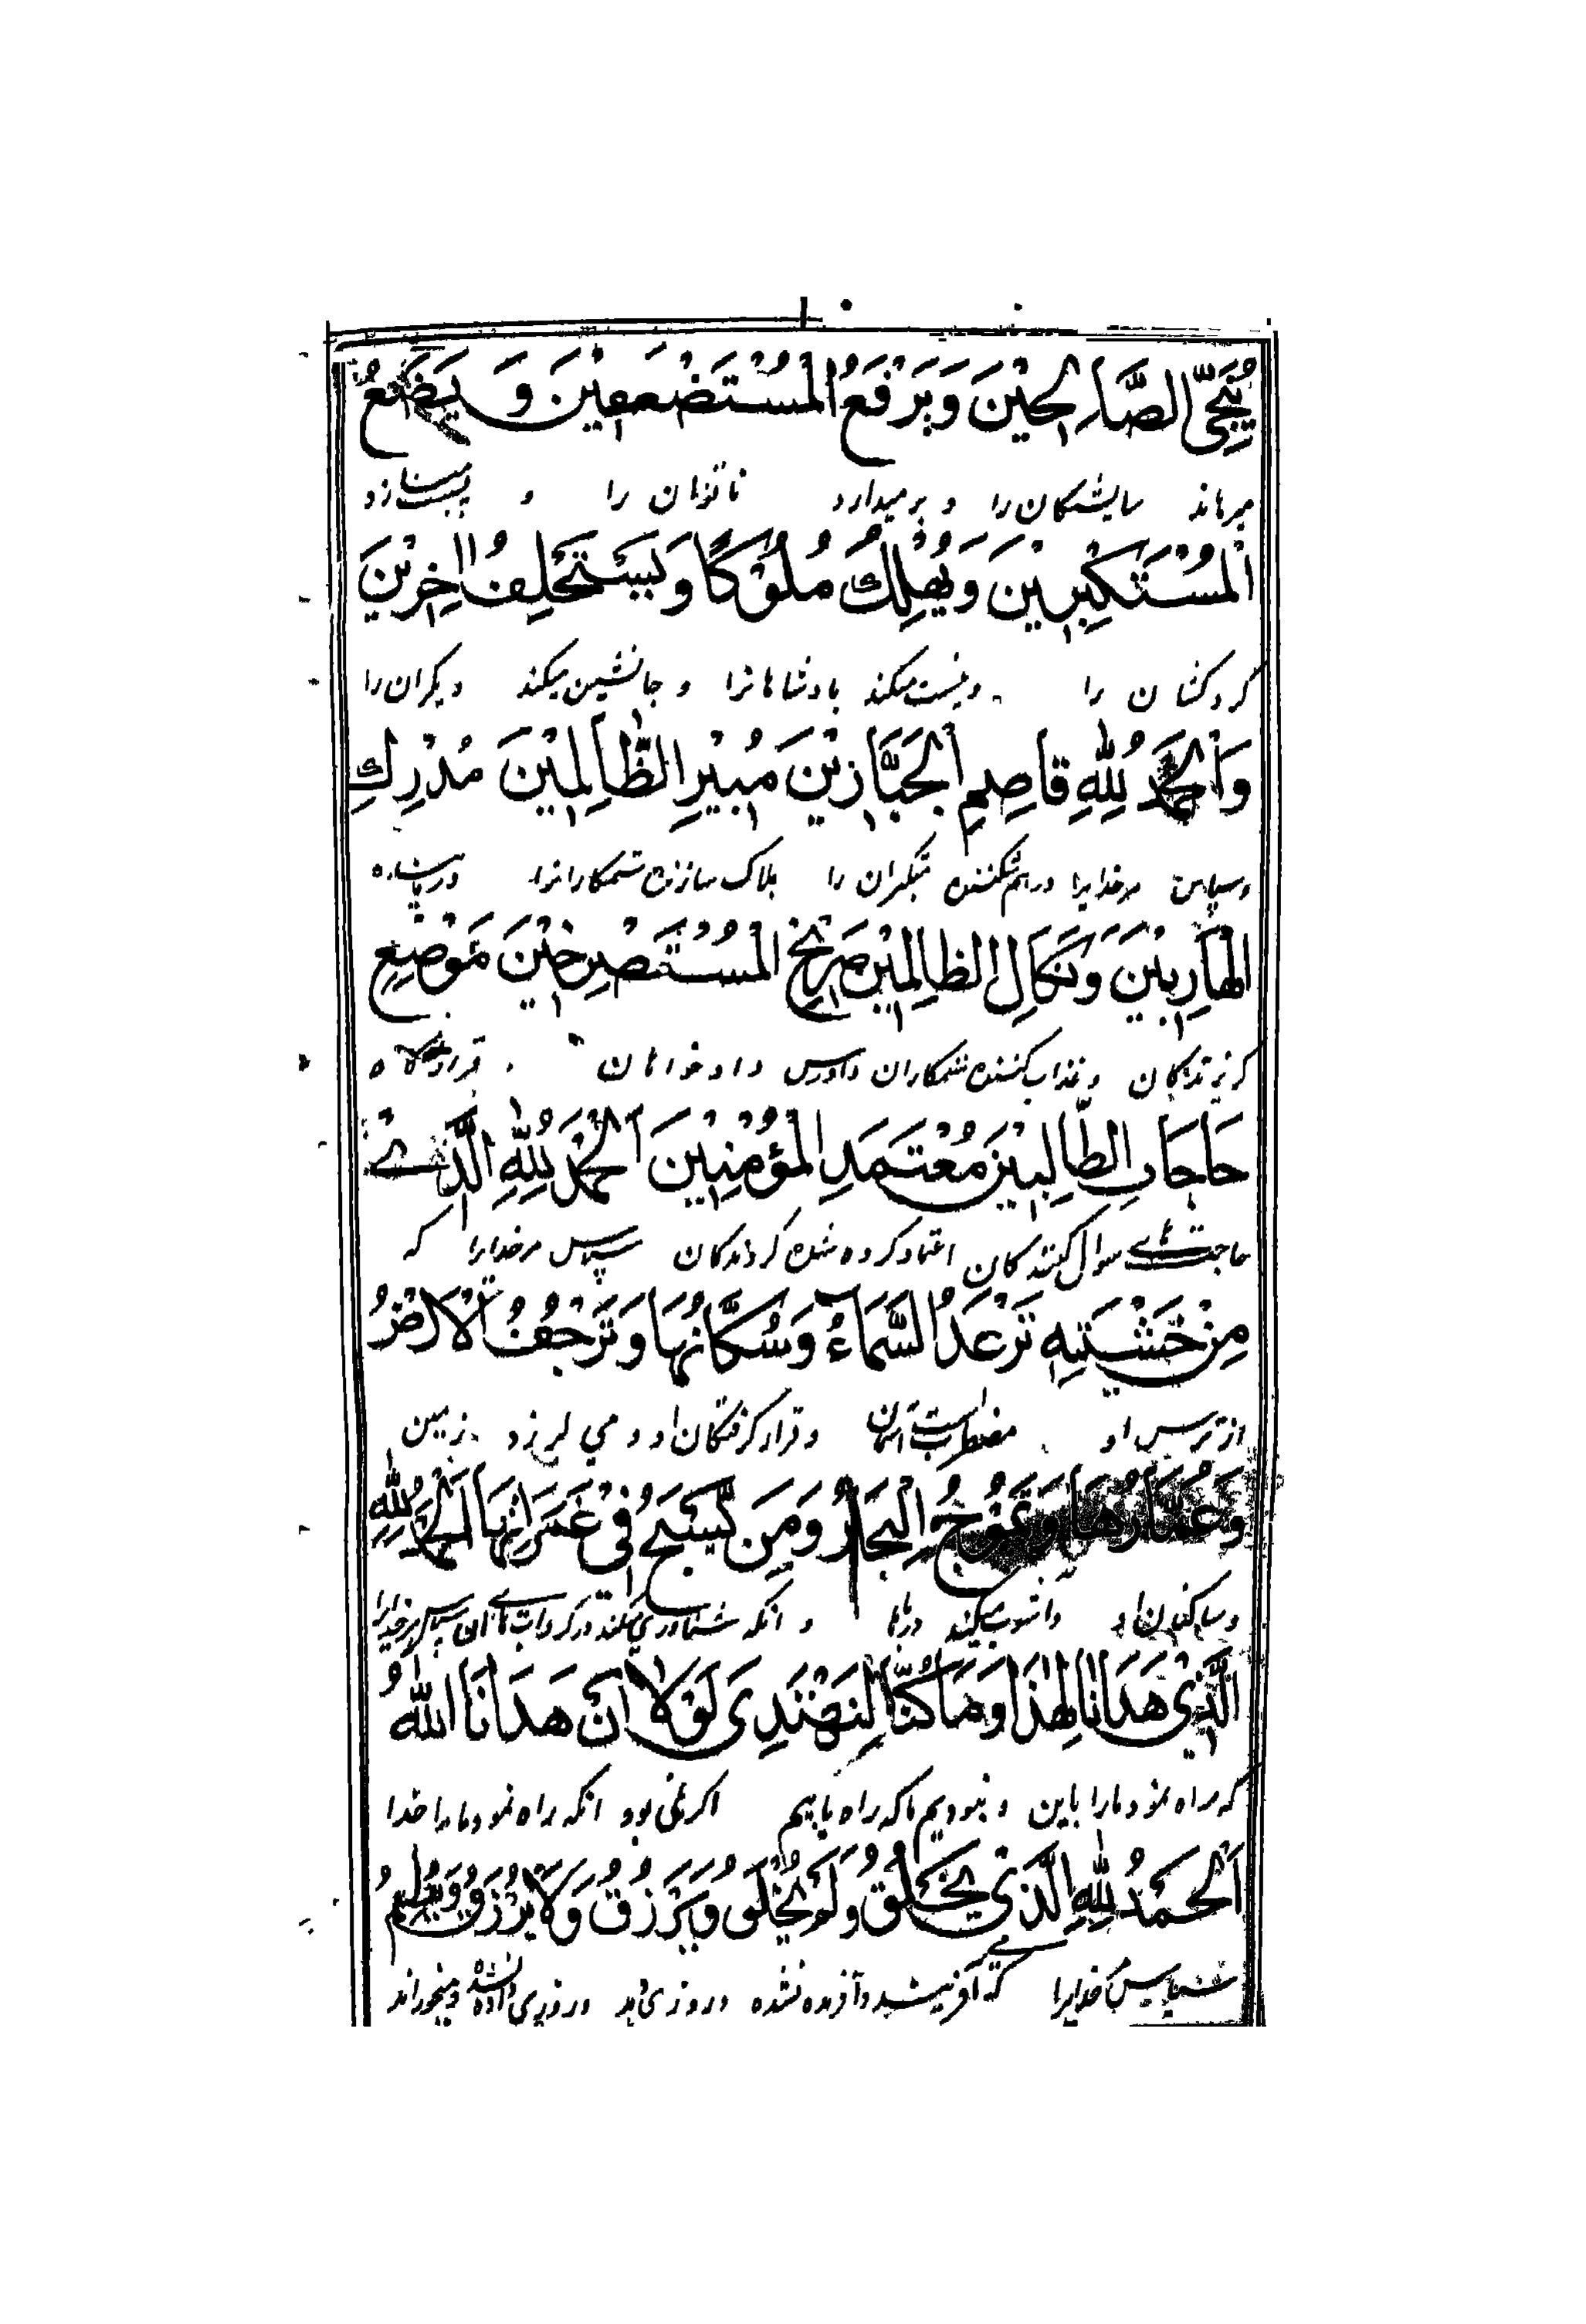 يُنَجِّي الصَّالِحِيْنَ وَيَرْفَعُ الْمُسْتَضْعَفِيْنَ وَ يَضَعُ
میرهاند شایستگان را و برمیدارد ناتوان را و پست میسازد
الْمُسْتَكْبِرِيْنَ وَيُهْلِكُ مُلُوْكًا وَيَسْتَخْلِفُ اٰخِرِيْنَ
گردنکشان را و نیست میکند پادشاهانرا و جانشین میکند دیگران را
وَالْحَمْدُ لِلّٰهِ قَاصِمِ الْجَبَّارِيْنَ مُبِيْرِ الظَّالِمِيْنَ مُدْرِكِ
و سپاس مر خدایرا درهم شکننده متکبران را هلاک سازنده ستمکارانرا دریابنده
الْهَارِبِيْنَ وَنَكَالِ الظَّالِمِيْنَ صَرِيْخِ الْمُسْتَصْرِخِيْنَ مَوْضِعِ
گریزندگان و عذاب کننده ستمکاران دادرس دادخواهان قرارگاه
حَاجَاتِ الطَّالِبِيْنَ مُعْتَمَدِ الْمُؤْمِنِيْنَ اَلْحَمْدُ لِلّٰهِ الَّذِيْ
حاجتهای سوال کنندگان اعتماد کرده شده گروندگان سپاس مر خدایرا که
مِنْ خَشْيَتِهٖ تَرْعَدُ السَّمَاءُ وَسُكَّانُهَا وَتَرْجُفُ الْاَرْضُ
از ترس او مضطرب است آسمان و قرار گرفتگان او و می لرزد زمین
وَعُمَّارُهَا وَتَمُوْجُ الْبِحَارُ وَمَنْ يَسْبَحُ فِيْ غَمَرَاتِهَا اَلْحَمْدُ لِلّٰهِ
و ساکنان او میکند دریاها و انکه شناوری میکند در گرداب های ان سپاس مر خدایرا
الَّذِيْ هَدَانَا لِهٰذَا وَمَا كُنَّا لِنَهْتَدِيَ لَوْلَا اَنْ هَدَانَا اللّٰهُ
که راه نمود مارا باین و نبودیم ما که راه یابیم اگر نمی بود انکه راه نمود مارا خدا
اَلْحَمْدُ لِلّٰهِ الَّذِيْ يَخْلُقُ وَلَمْ يُخْلَقْ وَيَرْزُقُ وَلَا يُرْزَقُ وَيُطْعِمُ
سپاس خدایرا که می آفریند و آفریده نشده و روزی دهد و روزی داده نشده و میخوراند